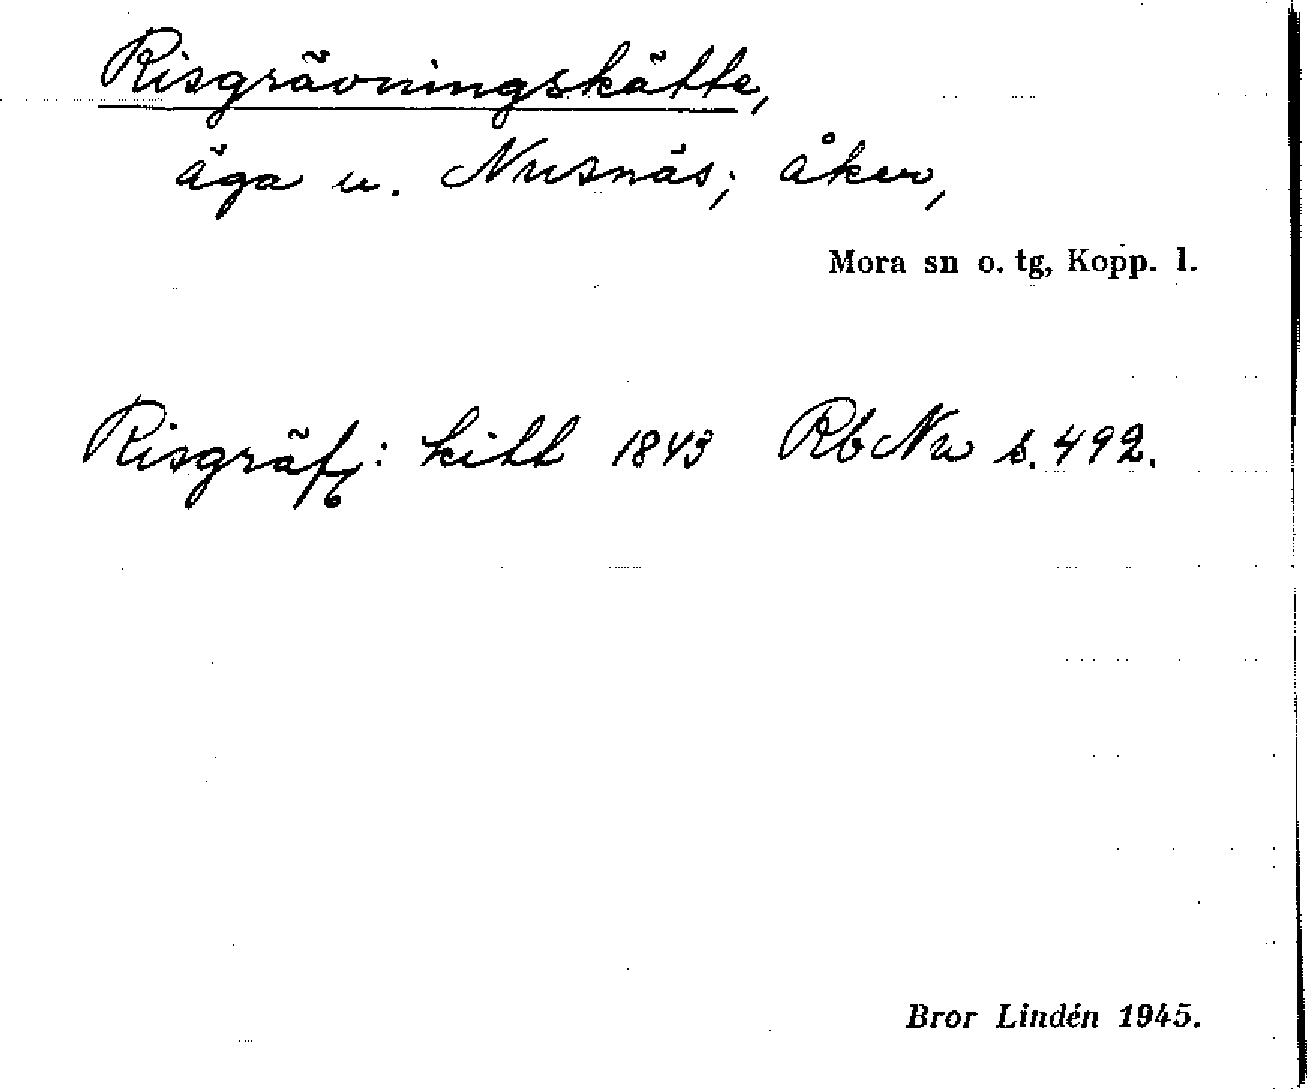 Risgrävningskätte,
äga u. Nusnäs; åker,
Mora sn o. tg, Kopp. l.
Risgräfg: kitt 1843 RbNu s. 492.
Bror Lindén 1945.